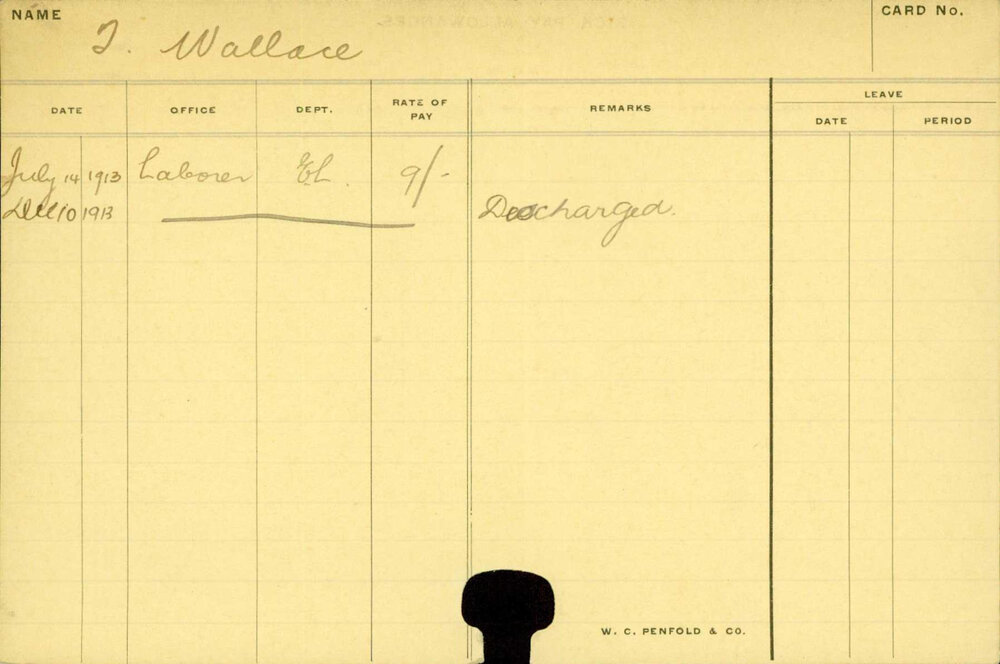 NAME
CARD No.
T. Wallace
DATE OFFICE DEPT. RATE OF PAY REMARKS LEAVE
DATE PERIOD
July 14 1913 Laborer EL. 9/-
Dec 10 1913 Discharged.
W. C. PENFOLD & CO.